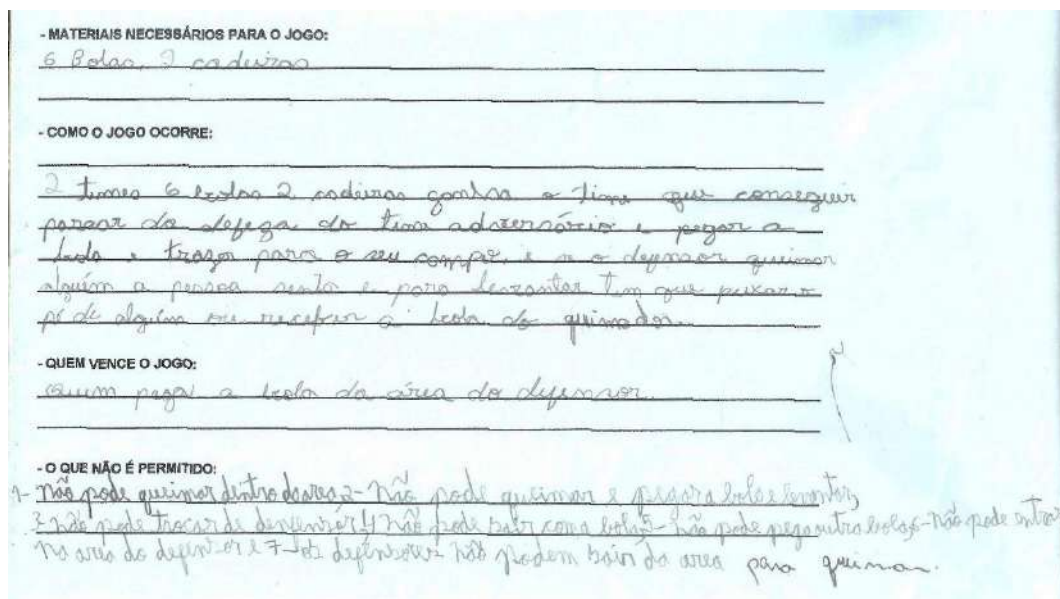 - MATERIAIS NECESSÁRIOS PARA O JOGO:
6 Bolas, 2 cadeiras
- COMO O JOGO OCORRE:
2 times 6 bolas 2 cadeiras ganha o time que conseguir
passar da defega do time adversário e pegar a
bola e trazer para o seu campo, e se o defensor queimar
alguém a pessoa senta e para levantar tem que puxar o
pé de alguém ou a bola do queimador
- QUEM VENCE O JOGO:
Quem pega a bola da área do defensor
- O QUE NÃO É PERMITIDO:
1- Não pode queimar dentro da area 2- Não pode queimar e pegar a bola e levantar,
3- não pode trocar de 4 não pode com a bola 5- não pode pega outra bola 6- não pode entrar
na area do defensor e 7- os defensores não podem sair da area para queimar.